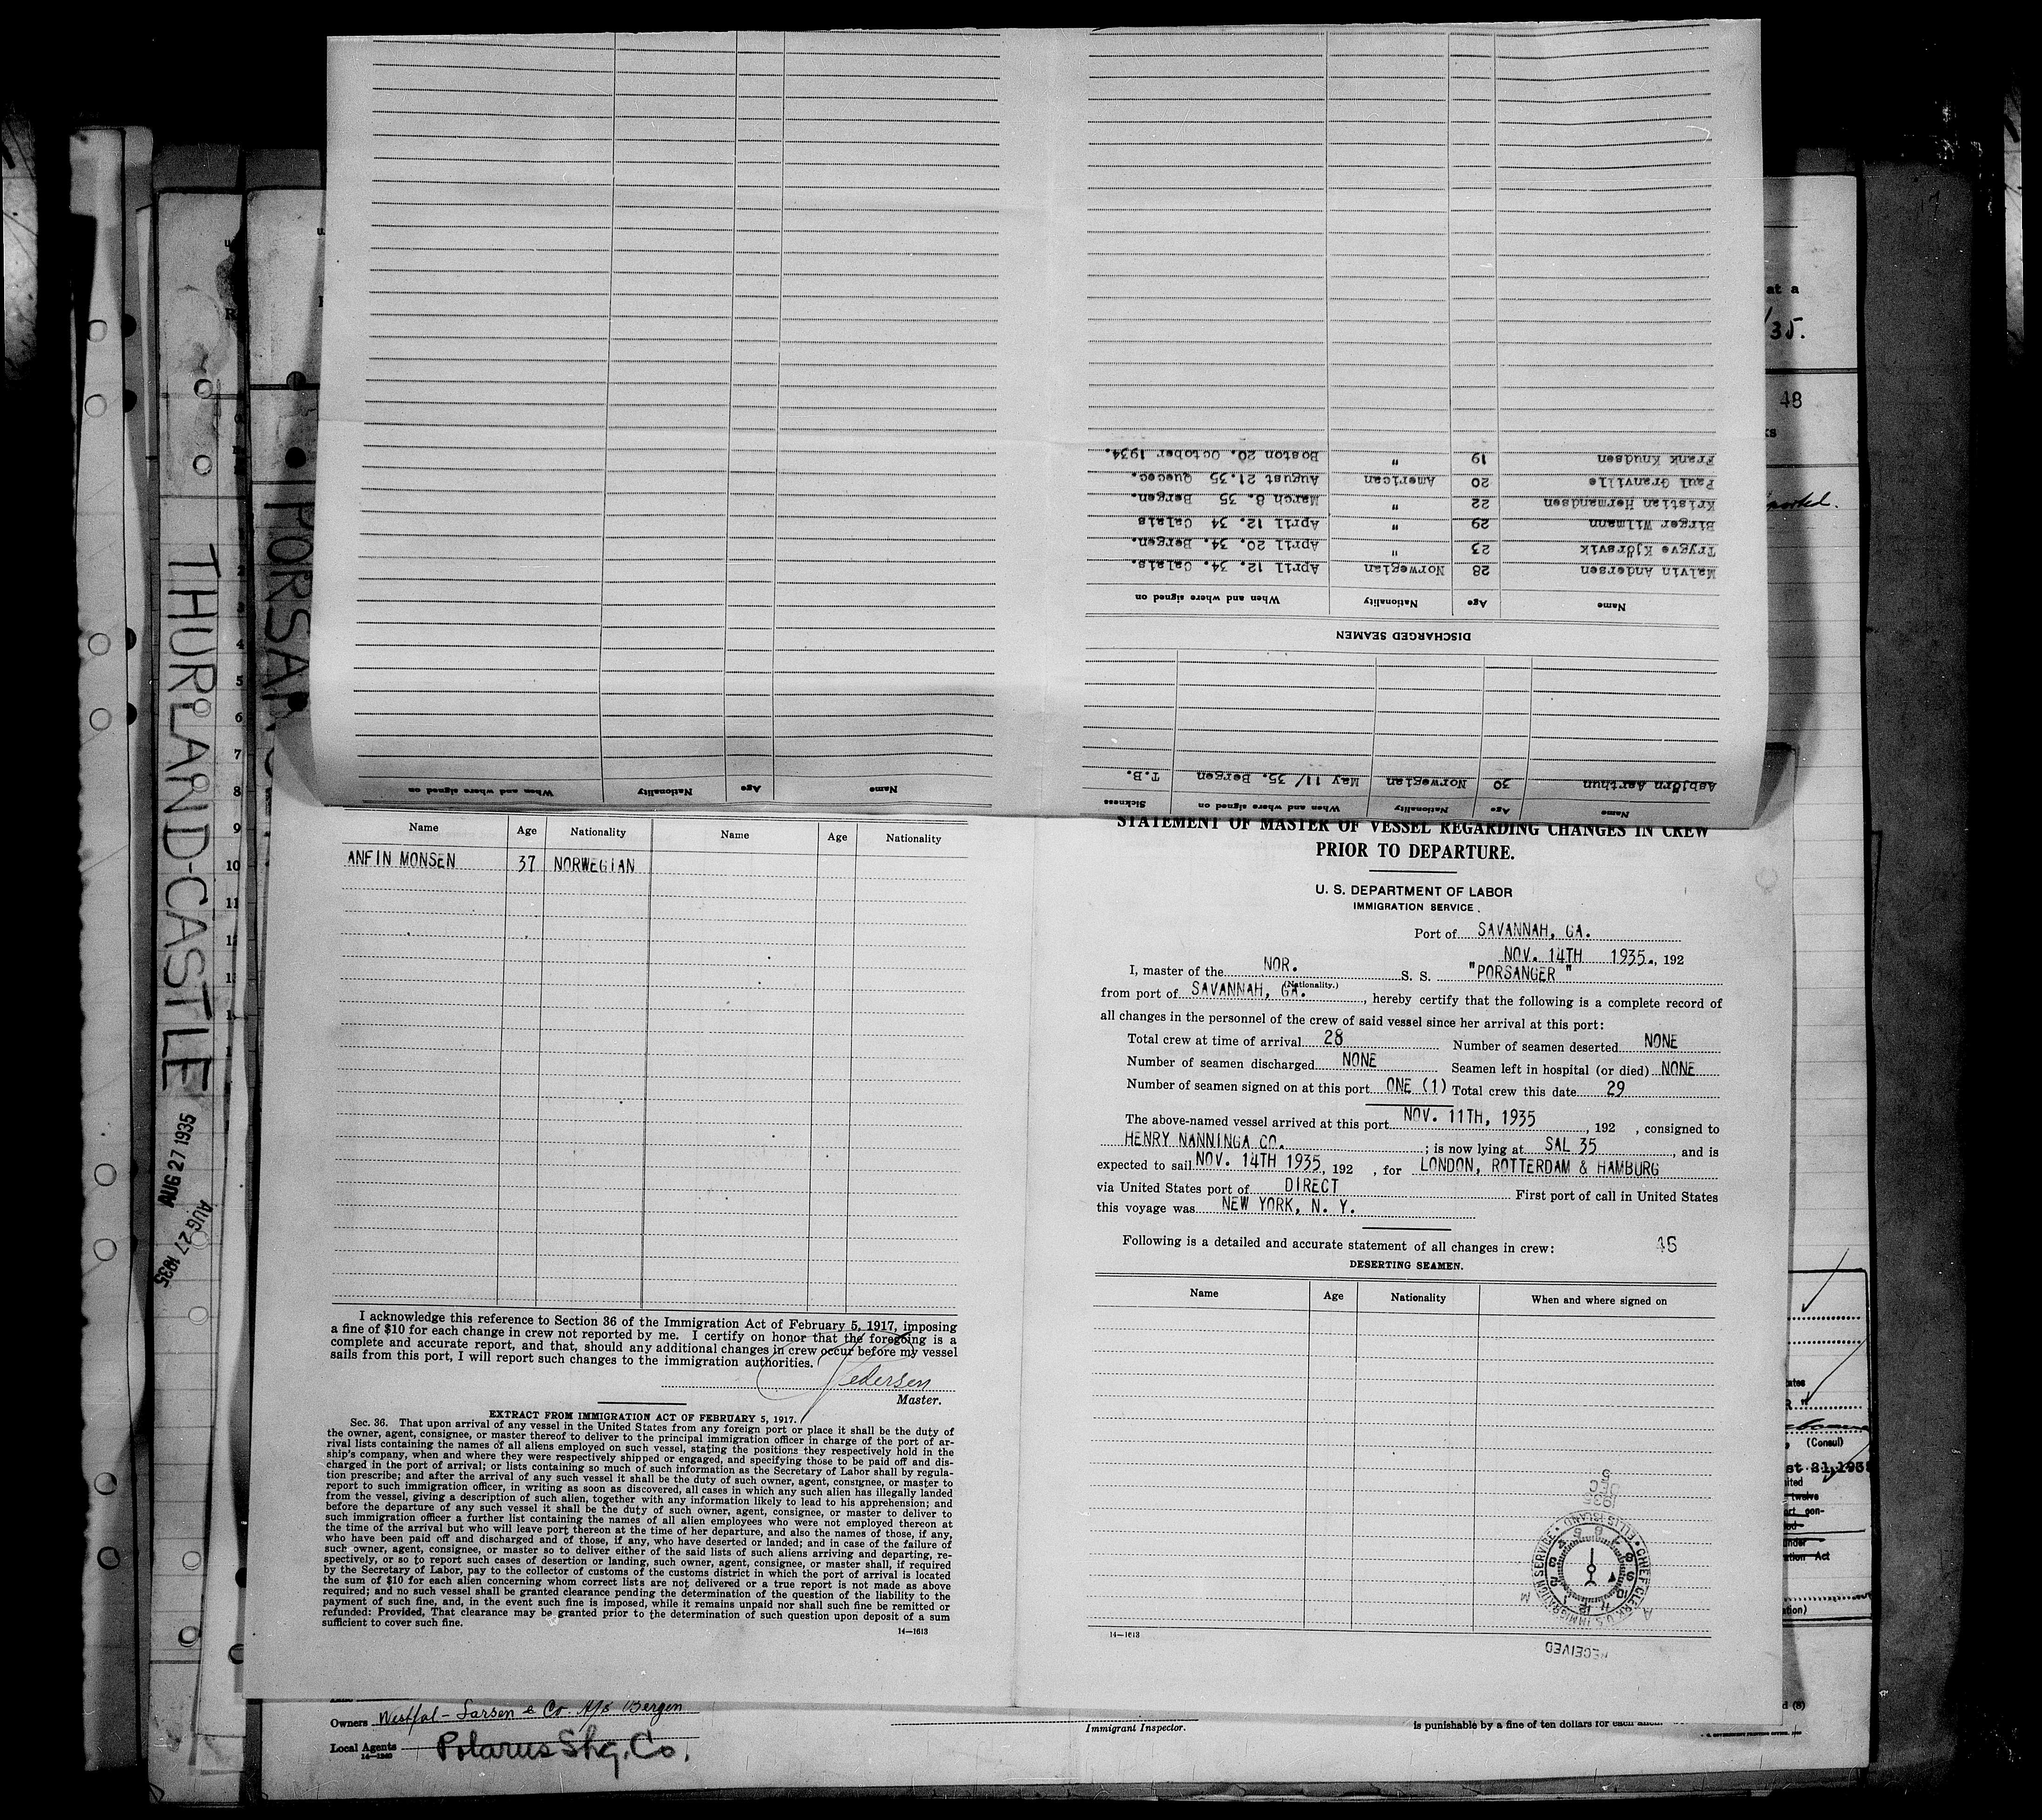 DISCHARGED SEAMEN
Name Age Nationality When and where signed on
Malvin Andersen 28 Norwegian April 12. 34. Calais.
Trygve Kjörsvik 23 " April 20. 34. Bergen.
Birger Wilmann 29 " April 12. 34 Calais
Kristian Hermandsen 22 " March 8. 35 Bergen.
Paul Granville 20 American August 21.35 Quecec.
Frank Knudsen 19 " Boston 20. October 1934.
Name Age Nationality When and where signed on Sickness
Asbjörn Aarthun 30 Norwegian May 11/ 35. Bergen T.B.
Name Age Nationality When and where signed on
THURLAND-CASTLE
AUG 27 1935
AUG 27 1935
at a
/35.
48
Name Age Nationality Name Age Nationality
ANFIN MONSEN 37 NORWEGIAN
I acknowledge this reference to Section 36 of the Immigration Act of February 5, 1917, imposing
a fine of $10 for each change in crew not reported by me. I certify on honor that the foregoing is a
complete and accurate report, and that, should any additional changes in crew occur before my vessel
sails from this port, I will report such changes to the immigration authorities.
Pedersen
Master.
EXTRACT FROM IMMIGRATION ACT OF FEBRUARY 5, 1917.
Sec. 36. That upon arrival of any vessel in the United States from any foreign port or place it shall be the duty of
the owner, agent, consignee, or master thereof to deliver to the principal immigration officer in charge of the port of ar-
rival lists containing the names of all aliens employed on such vessel, stating the positions they respectively hold in the
ship's company, when and where they were respectively shipped or engaged, and specifying those to be paid off and dis-
charged in the port of arrival; or lists containing so much of such information as the Secretary of Labor shall by regula-
tion prescribe; and after the arrival of any such vessel it shall be the duty of such owner, agent, consignee, or master to
report to such immigration officer, in writing as soon as discovered, all cases in which any such alien has illegally landed
from the vessel, giving a description of such alien, together with any information likely to lead to his apprehension; and
before the departure of any such vessel it shall be the duty of such owner, agent, consignee, or master to deliver to
such immigration officer a further list containing the names of all alien employees who were not employed thereon at
the time of the arrival but who will leave port thereon at the time of her departure, and also the names of those, if any,
who have been paid off and discharged and of those, if any, who have deserted or landed; and in case of the failure of
such owner, agent, consignee, or master so to deliver either of the said lists of such aliens arriving and departing, re-
spectively, or so to report such cases of desertion or landing, such owner, agent, consignee, or master shall, if required
by the Secretary of Labor, pay to the collector of customs of the customs district in which the port of arrival is located
the sum of $10 for each alien concerning whom correct lists are not delivered or a true report is not made as above
required; and no such vessel shall be granted clearance pending the determination of the question of the liability to the
payment of such fine, and, in the event such fine is imposed, while it remains unpaid nor shall such fine be remitted or
refunded: Provided, That clearance may be granted prior to the determination of such question upon deposit of a sum
sufficient to cover such fine.
14—1613
STATEMENT OF MASTER OF VESSEL REGARDING CHANGES IN CREW
PRIOR TO DEPARTURE.
U. S. DEPARTMENT OF LABOR
IMMIGRATION SERVICE
Port of SAVANNAH, GA.
NOV. 14TH 1935., 192
I, master of the NOR. S. S. "PORSANGER "
(Nationality.)
from port of SAVANNAH, GA. , hereby certify that the following is a complete record of
all changes in the personnel of the crew of said vessel since her arrival at this port:
Total crew at time of arrival 28 Number of seamen deserted NONE
Number of seamen discharged NONE Seamen left in hospital (or died) NONE
Number of seamen signed on at this port ONE (1) Total crew this date 29
The above-named vessel arrived at this port NOV. 11TH, 1935 , 192 , consigned to
HENRY NANNINGA CO. ; is now lying at SAL 35 , and is
expected to sail NOV. 14TH 1935, 192 , for LONDON, ROTTERDAM & HAMBURG
via United States port of DIRECT First port of call in United States
this voyage was NEW YORK, N. Y.
Following is a detailed and accurate statement of all changes in crew: 46
DESERTING SEAMEN.
Name Age Nationality When and where signed on
1935
DEC
5
CHIEF CLERK U.S. IMMIGRATION SERVICE • ELLIS ISLAND
RECEIVED
14—1613
Owners Westfal-Larsen & Co. A/s Bergen
Local Agents Polarus Shg. Co.
14—1240
Immigrant Inspector.
is punishable by a fine of ten dollars for each alien.
(Consul)